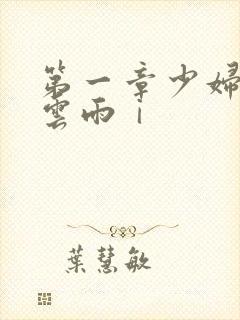 第一章少婦
雲雨｜
葉慧敏